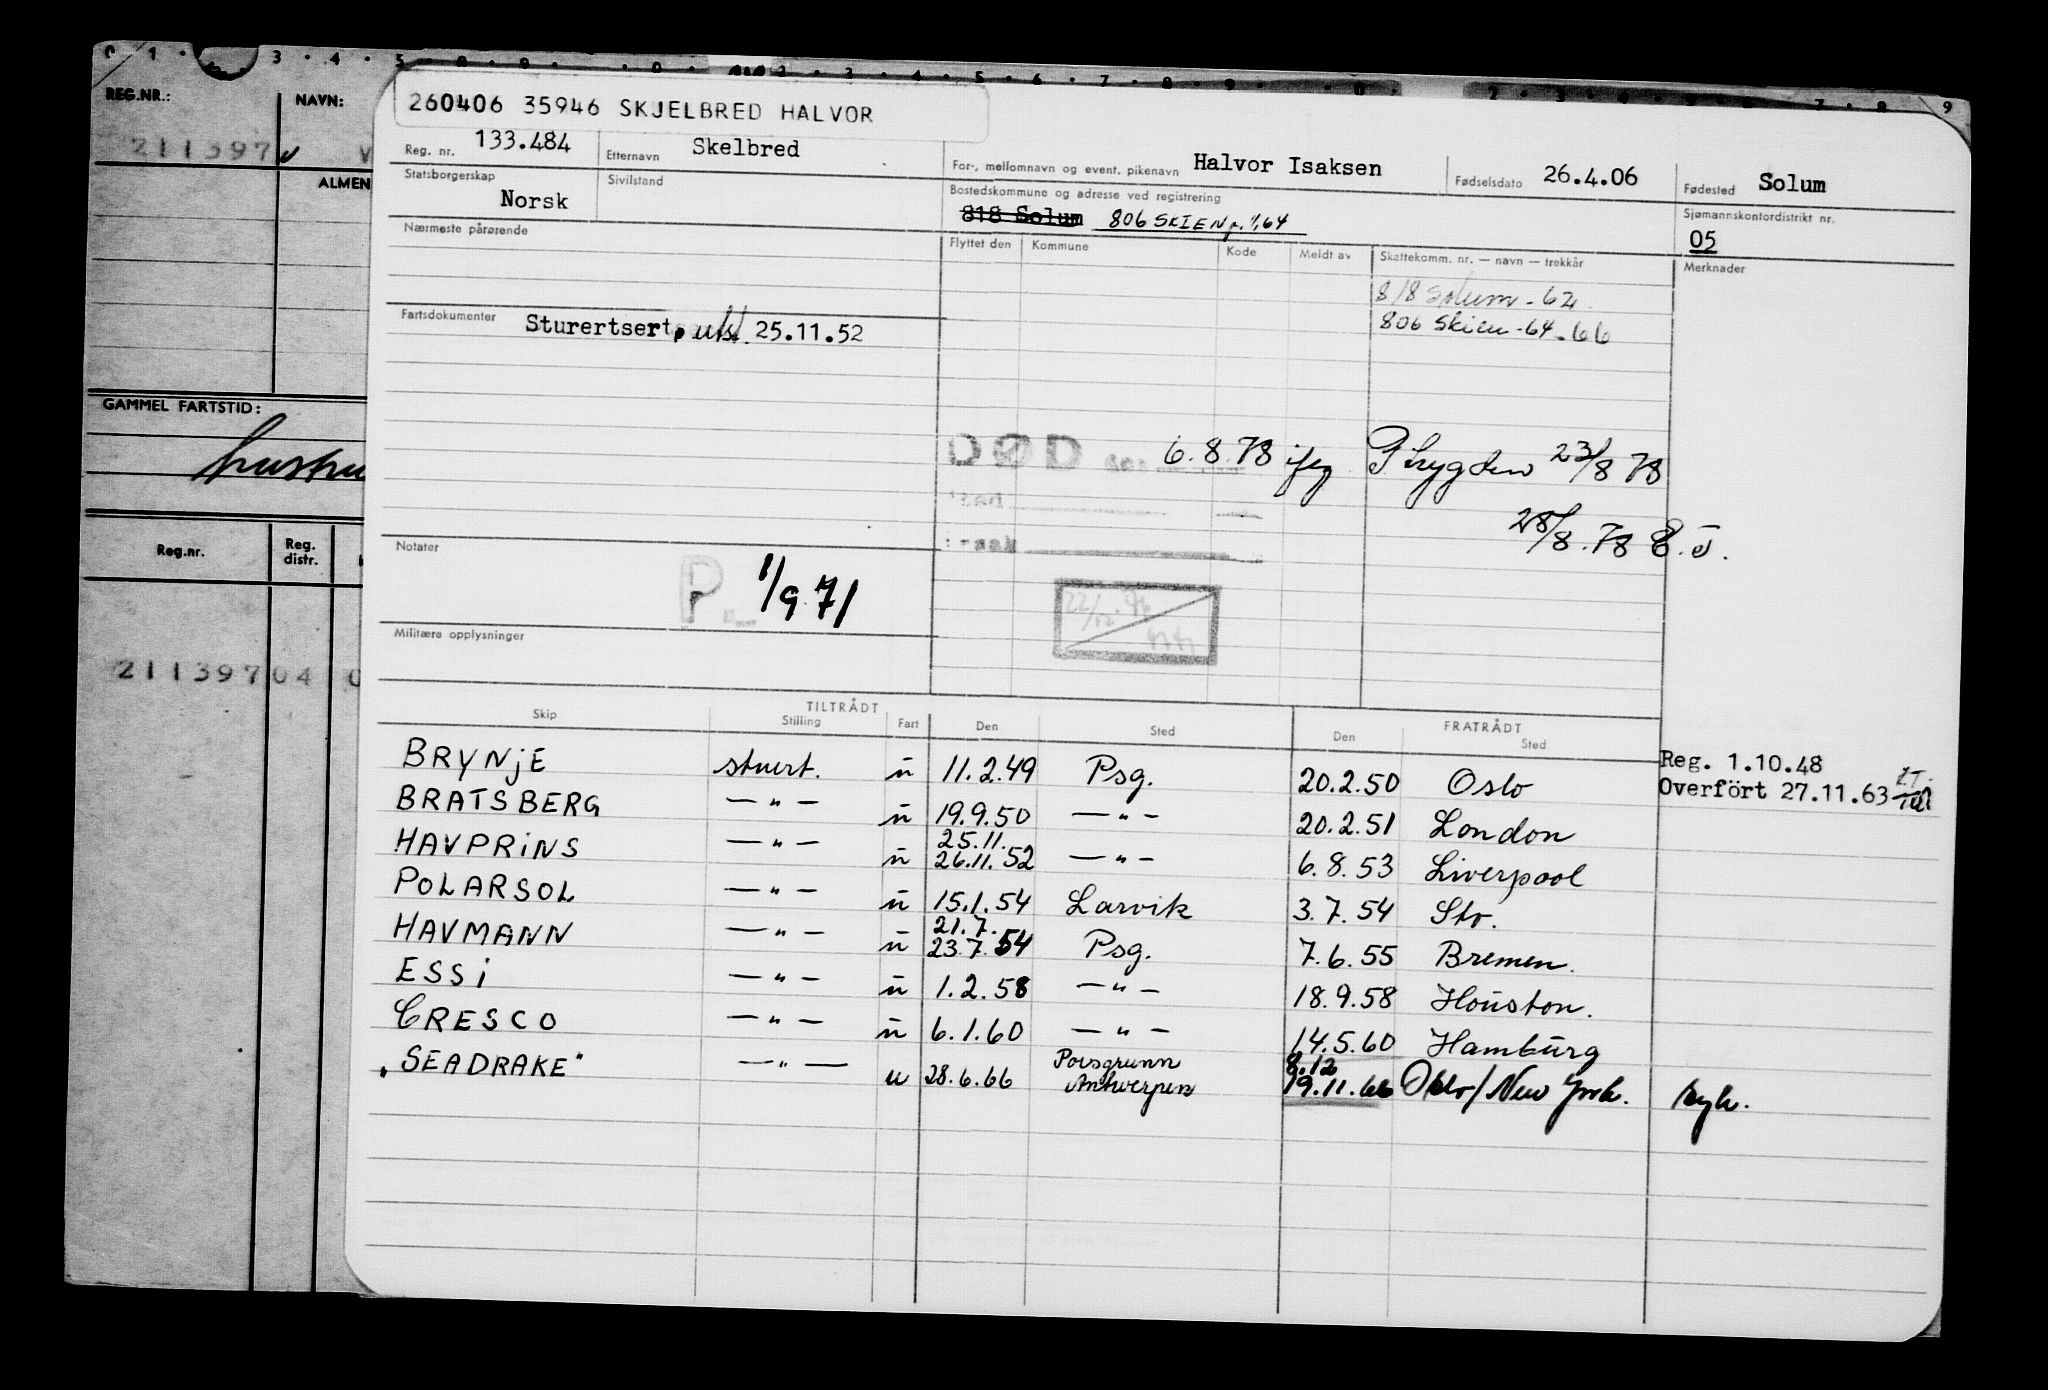 0 1 · 3 · 4 · 5 · 8 · 9 · · 0 · 2 · 3 · 4 · 5 · 6 · 7 · 8 · 9 · · 0 · 2 · 3 · 4 · 5 · 6 · 7 · 8 9
REG.NR.: NAVN:
211397 V
ALMEN
GAMMEL FARTSTID:
Reg.nr. Reg. distr.
211397 04 0
260406 35946 SKJELBRED HALVOR
Reg. nr. 133.484 Etternavn Skelbred For-, mellomnavn og event. pikenavn Halvor Isaksen Fødselsdato 26.4.06 Fødested Solum
Statsborgerskap Norsk Sivilstand Bostedskommune og adresse ved registrering 818 Solum 806 SKIEN pr. 1/1 64 Sjømannskontordistrikt nr. 05
Nærmeste pårørende Flyttet den Kommune Kode Meldt av Skattekomm. nr. — navn — trekkår Merknader
818 Solum - 62
806 Skien - 64 - 66
Fartsdokumenter Sturertsert, utst. 25.11.52
DØD den 6.8.78 ifgl P trygden 23/8 78
28/8.78 E.J.
Notater P. 1/9 71
Militære opplysninger
TILTRÅDT FRATRÅDT
Skip Stilling Fart Den Sted Den Sted
BRYNJE stuert. u 11.2.49 Psg. 20.2.50 Oslo Reg. 1.10.48
BRATSBERG — " — u 19.9.50 — " — 20.2.51 London Overfört 27.11.63
HAVPRINS — " — u 25.11. 26.11.52 — " — 6.8.53 Liverpool
POLARSOL — " — u 15.1.54 Larvik 3.7.54 Sto.
HAVMANN — " — u 21.7. 23.7.54 Psg. 7.6.55 Bremen.
ESSI — " — u 1.2.58 — " — 18.9.58 Houston.
CRESCO — " — u 6.1.60 — " — 14.5.60 Hamburg
"SEADRAKE" — " — u 28.6.66 Porsgrunn Antwerpen 8.12 19.11.66 Oslo/New York. syk.